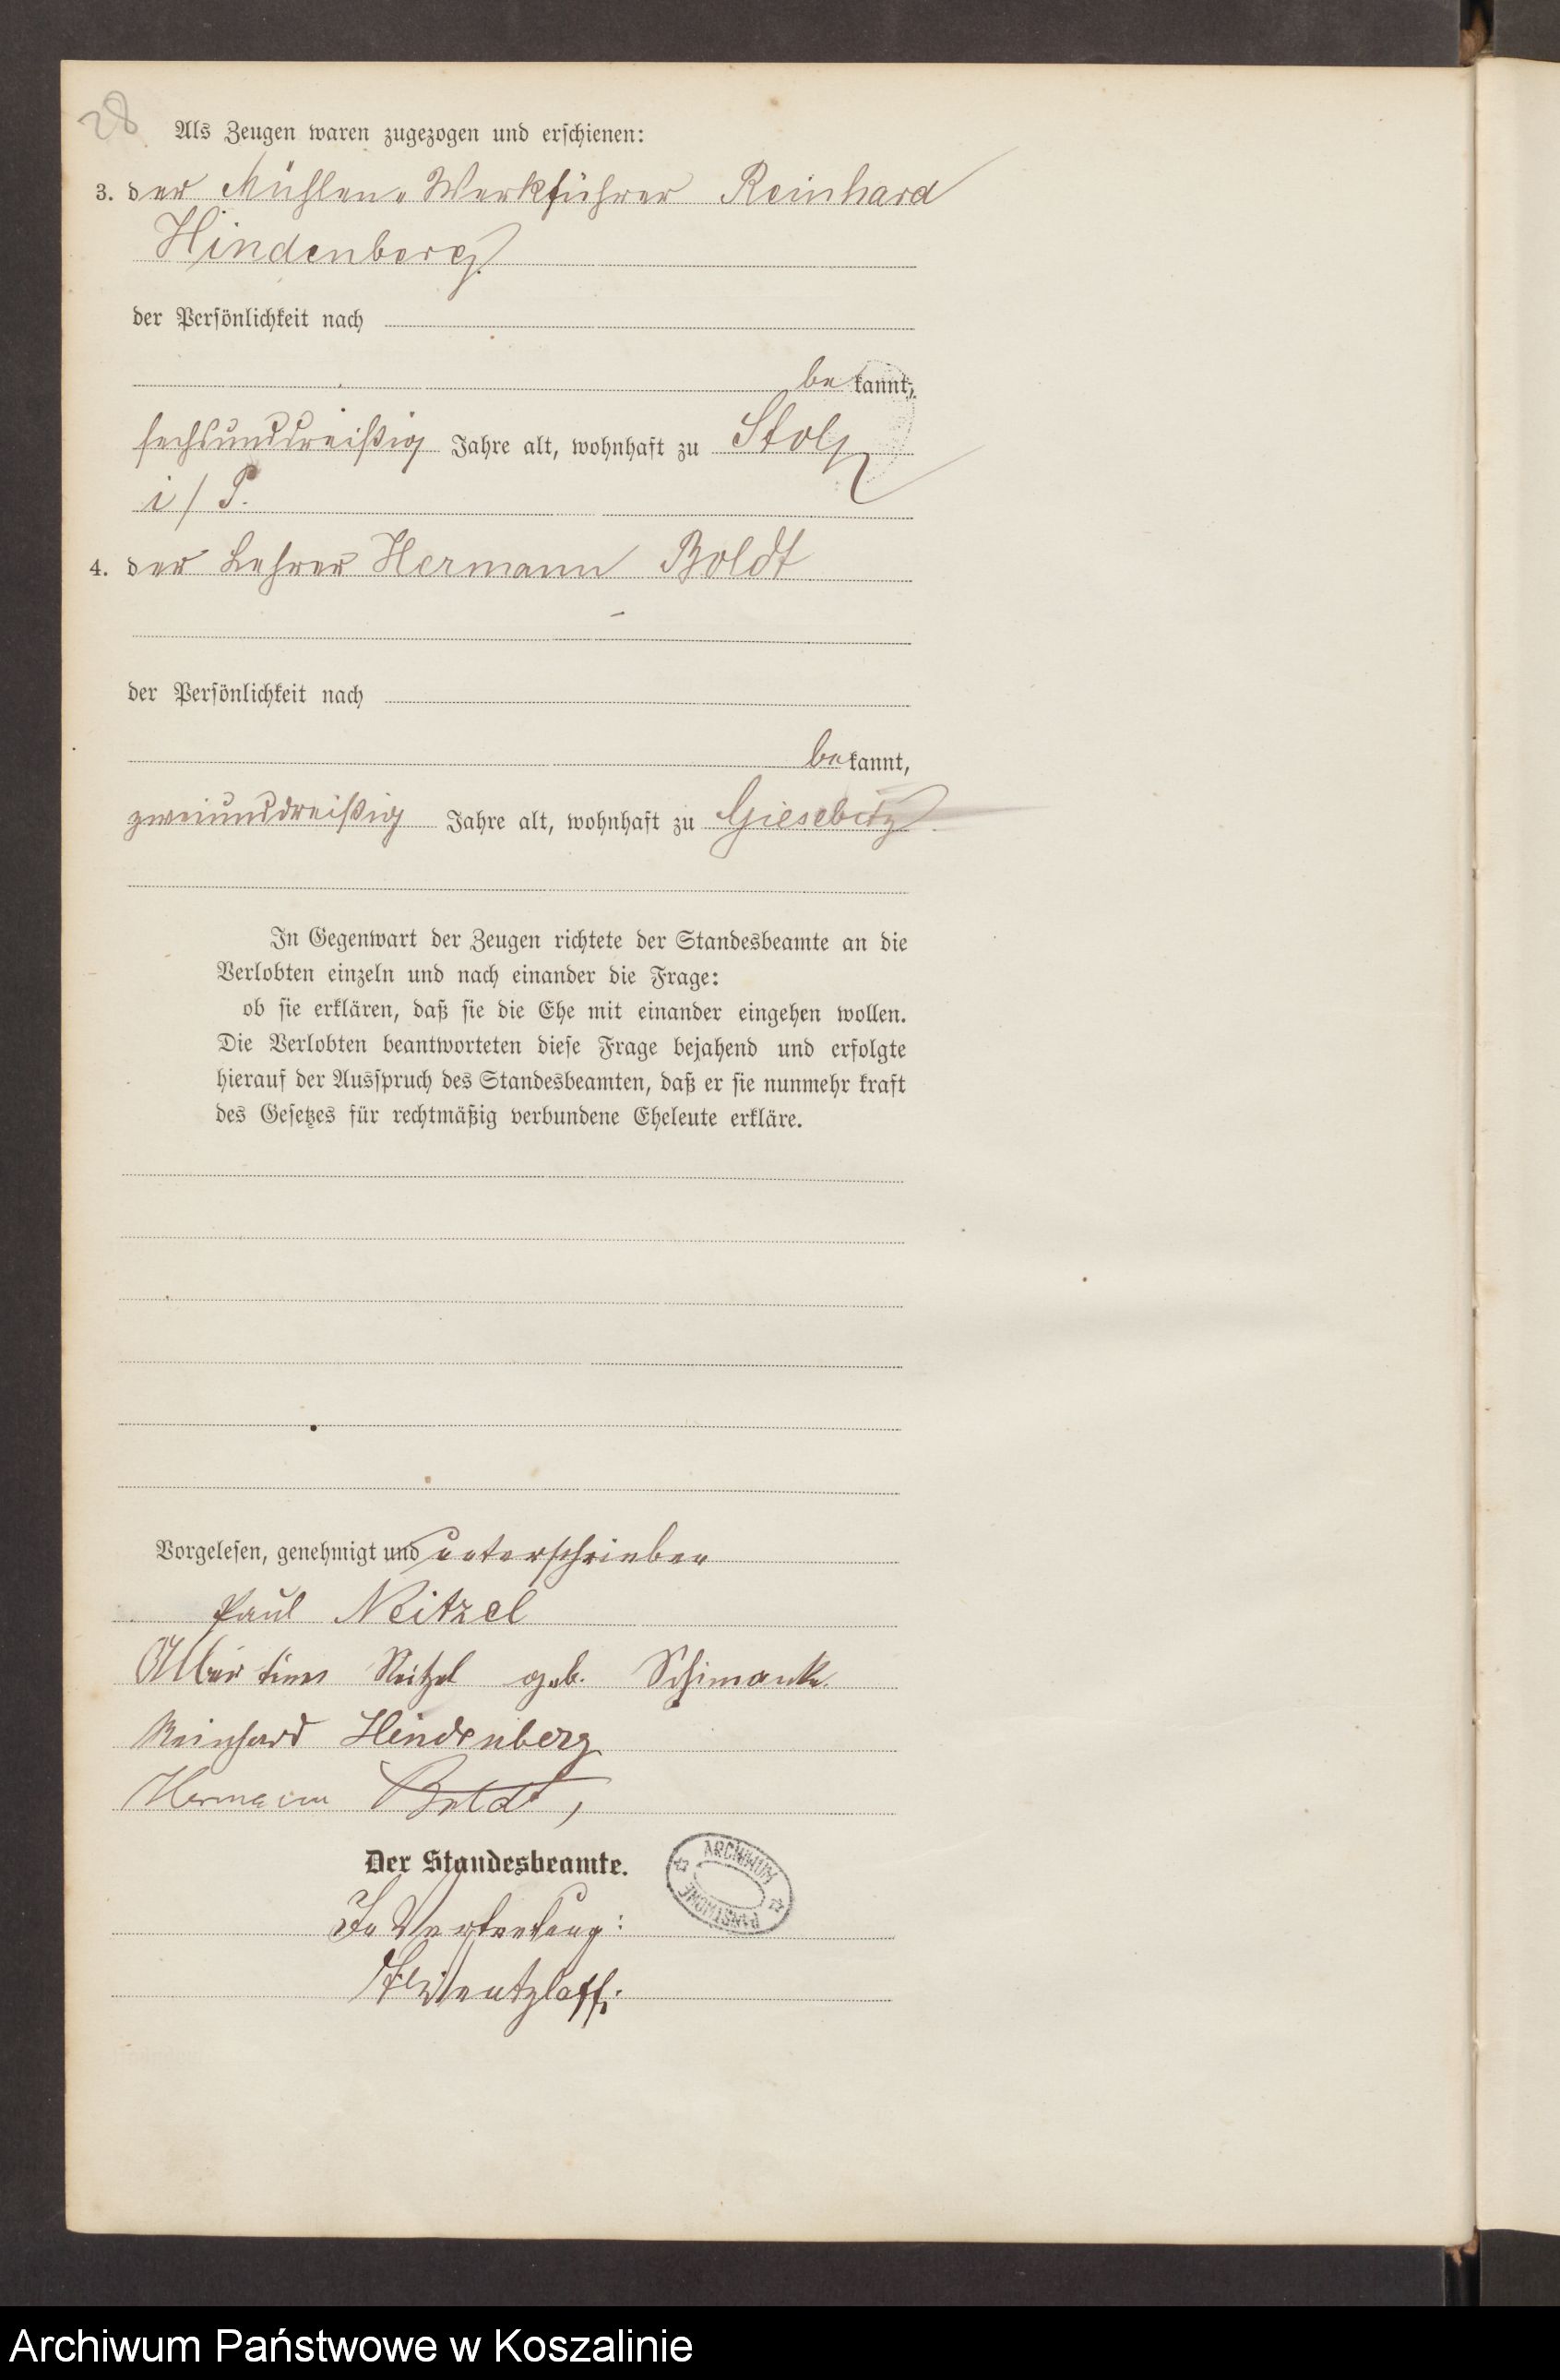 28
Als Zeugen waren zugezogen und erschienen:
3. der Mühlen-Werkführer Reinhard
Hindenberg
der Persönlichkeit nach
bekannt,
sechsunddreißig Jahre alt, wohnhaft zu Stolp
i/P.
4. der Lehrer Hermann Boldt
der Persönlichkeit nach
bekannt,
zweiunddreißig Jahre alt, wohnhaft zu Giesebitz
In Gegenwart der Zeugen richtete der Standesbeamte an die
Verlobten einzeln und nach einander die Frage:
ob sie erklären, daß sie die Ehe mit einander eingehen wollen.
Die Verlobten beantworteten diese Frage bejahend und erfolgte
hierauf der Ausspruch des Standesbeamten, daß er sie nunmehr kraft
des Gesetzes für rechtmäßig verbundene Eheleute erkläre.
Vorgelesen, genehmigt und unterschrieben
Paul Neitzel
Albertine Neitzel geb. Schimanke
Reinhard Hindenberg
Hermann Boldt,
Der Standesbeamte.
In Vertretung:
Wentzlaff.
ARCHIWUM PAŃSTWOWE
Archiwum Państwowe w Koszalinie